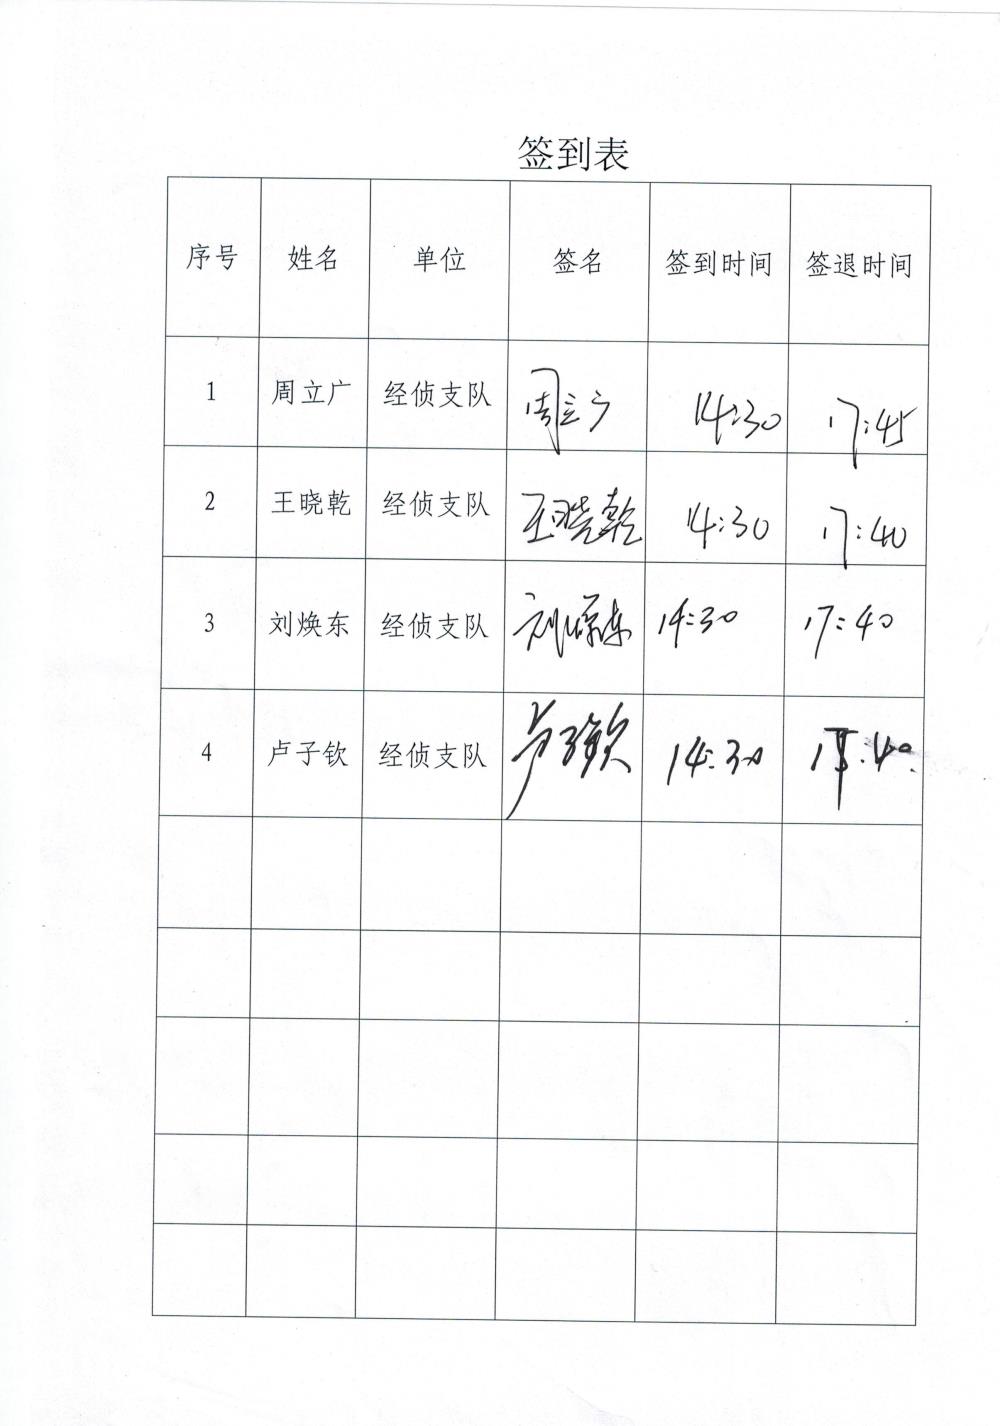 签到表
序号 姓名 单位 签名 签到时间 签退时间
1 周立广 经侦支队 周立广 14:30 17:45
2 王晓乾 经侦支队 王晓乾 14:30 17:40
3 刘焕东 经侦支队 刘焕东 14:30 17:40
4 卢子钦 经侦支队 卢子钦 14:30